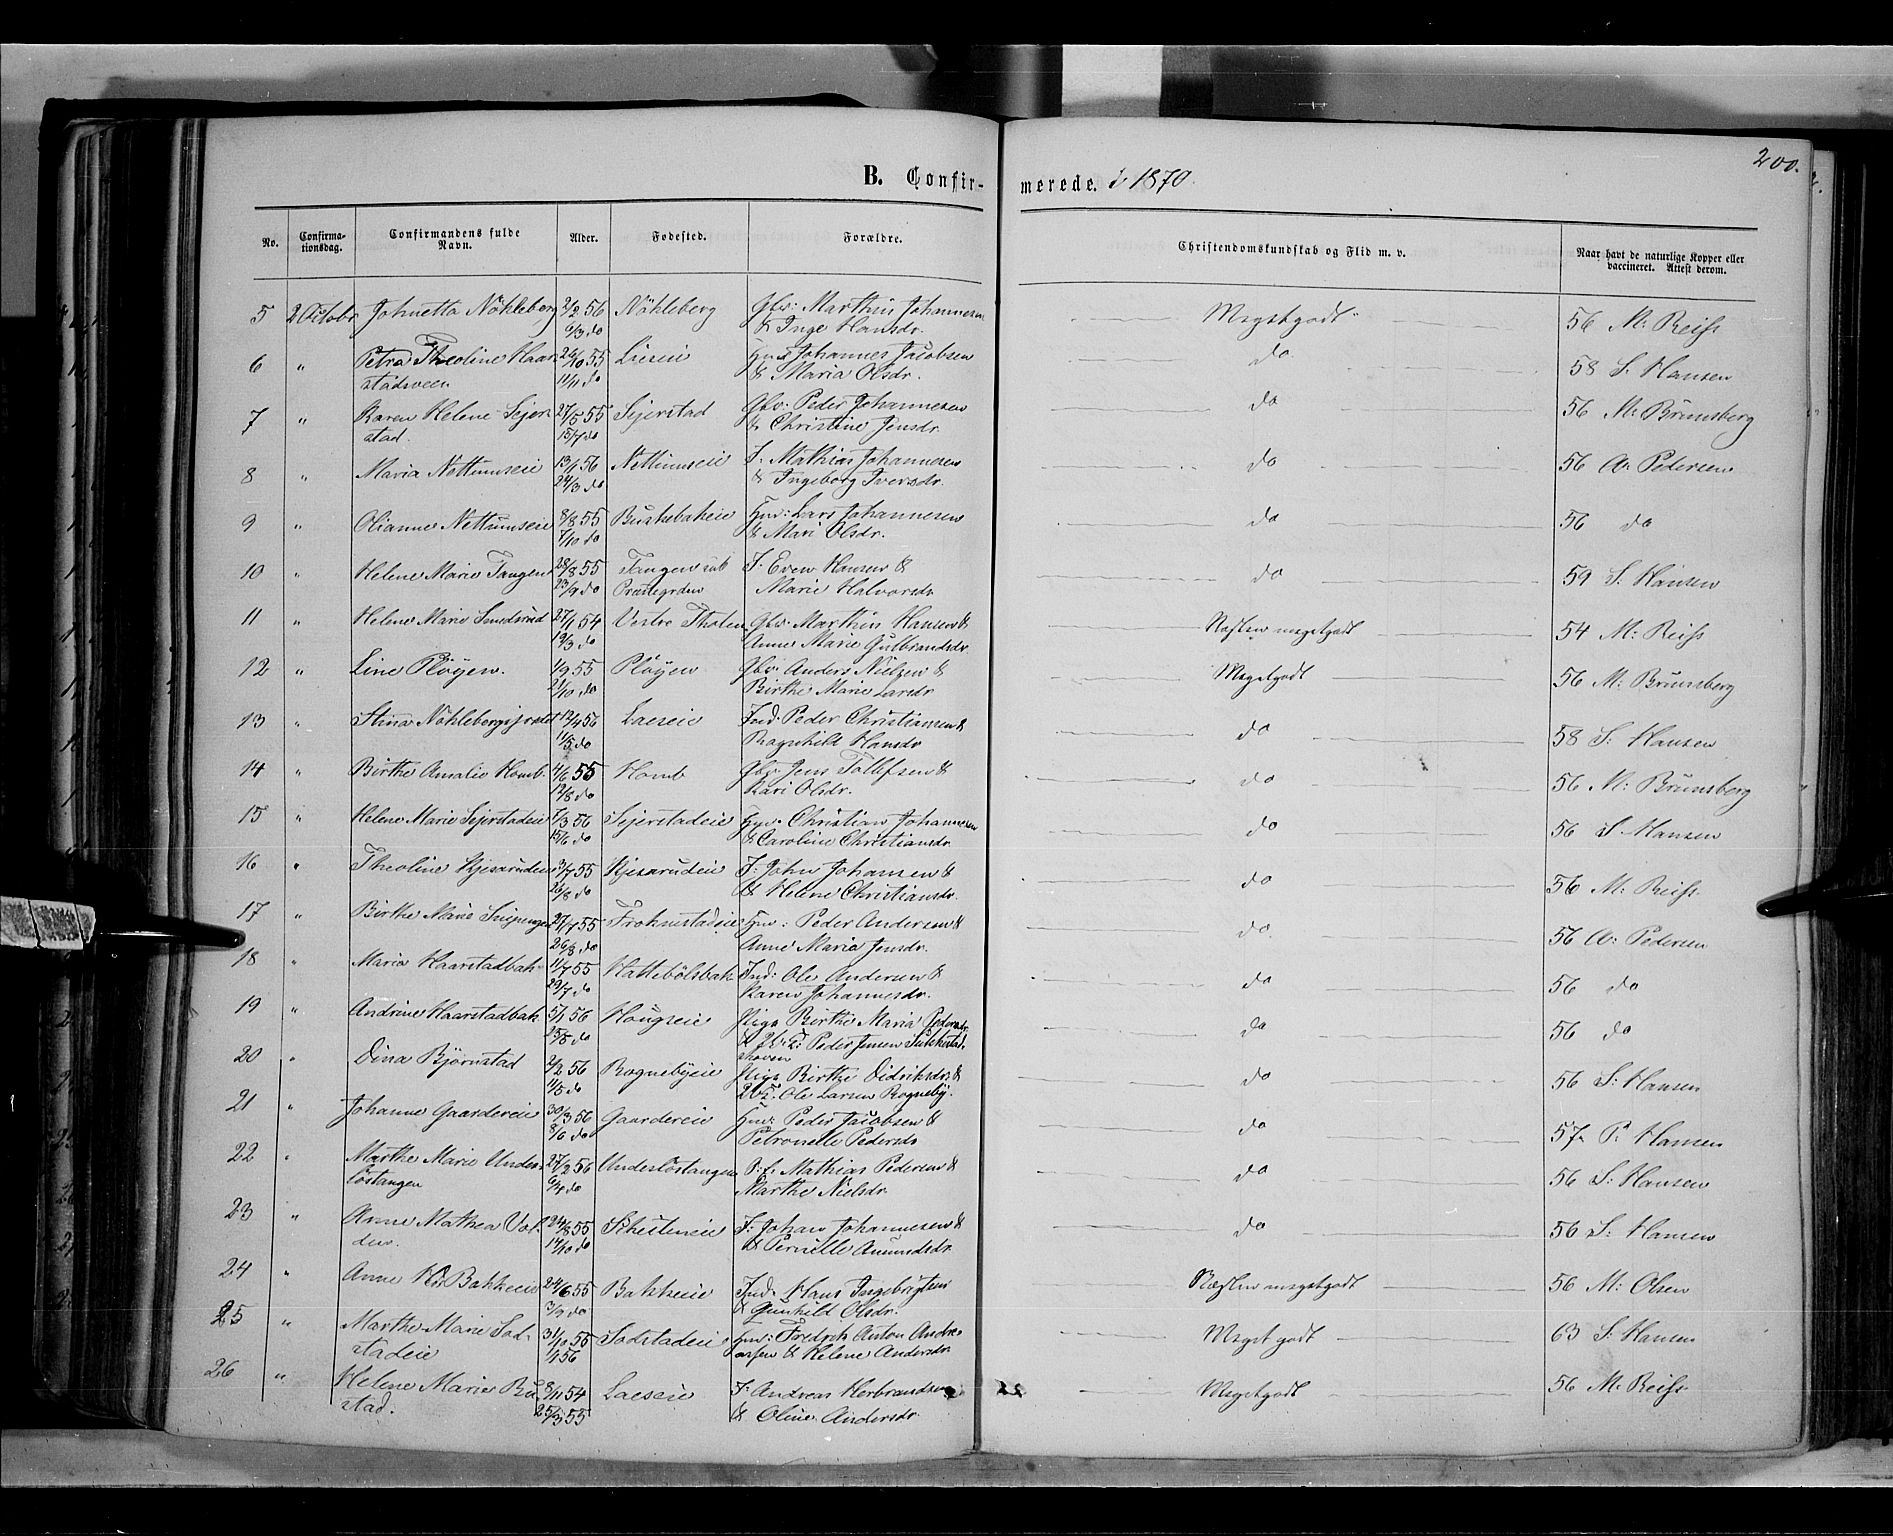 200.
B. Confirmerede. i 1870.
No. Confirmationsdag. Confirmandens fulde Navn. Alder. Fodested. Forældre. Christendomskundskab og Flid m. v. Naar havt de naturlige Kopper eller vaccineret. Attest derom.
5 2 Octobr Johnetta Nökleberg 2/2 56 Nökleberg Gbr: Marthin Johannesen Megetgodt 56 M: Reiss
6/3 do & Inge Hansdr.
6 " Petra Theoline Haar 26/10 55 Lieseie Hmd Johannes Jacobsen do 58 S. Hansen
stadsveen 11/11 do & Maria Olsdr.
7 " Karen Helene Sejer 27/5 55 Sejerstad Gbr: Peder Johannesen do 56 M: Brunsberg
stad. 15/7 do & Christine Jensdr.
8 " Maria Nettumseie 13/1 56 Nettumseie I. Mathias Johannesen do 56 A. Pedersen
24/3 do & Ingeborg Iversdr.
9 " Olianne Nettumseie 8/8 55 Buskebakeie Hmd: Lars Johannesen do 56 do
7/10 do & Mari Olsdr.
10 " Helene Marie Tangen 28/8 55 Tangen I. Even Hansen & do 59 S. Hansen
23/9 do Præstegrden Marie Halvorsdr
11 " Helene Marie 27/1 54 Vestre Thoten Gbr. Marthin Hansen & Næsten megetgodt 54 M: Reiss
12/3 do Anne Marie Gulbrandsdr.
12 " Line Plöyen. 1/9 55 Plöyen Gbr. Anders Nielsen & Megetgodt 56 M: Brunsberg
21/10 do Birthe Marie Larsdr
13 " Stina 12/4 56 Laeseie Ind. Peder Christiansen & do 58 S: Hansen
11/5 do Ragnhild Hansdr.
14 " Birthe Amalie Homb 4/6 55 Homb Gbr. Jens Tollefsen & do 56 M: Brunsberg
12/8 do Kari Olsdr.
15 " Helene Marie Sejerstadeie 7/3 56 Sejerstadeie Christian Johannesen do 56 S. Hansen
15/6 do & Caroline Christiansdr.
16 " Theoline Kjesarudeie 3/7 55 Kjesarudeie I: John Johansen & do 56 M: Reiss
26/8 do & Helene Christiansdr.
17 " Birthe Marie 27/7 55 Frohnstadeie Hmd: Peder Andersen & do 56 A: Pedersen
26/8 do Anne Maria Jensdr.
18 " Maria Haarstadbak 11/7 55 Hattebölsbak Ind: Ole Andersen & do 56 do
29/7 do Karen Johannesdr.
19 " Andrine Haarstadbak 5/1 56 Hougseie Piga Birthe Maria Pedersdr. do 56 do
25/5 do Peder Jensen
20 " Dina Bjørnstad 2/2 56 Rognebyeie Piga Birthe Didriksdr. & do 56 S: Hansen
11/5 do Ole Larsen Rogneby.
21 " Johanne Gaardereie 30/3 56 Gaardereie Hmd: Peder Jacobsen & do 57 P. Hansen
8/6 do Petronelle Pedersdr
22 " Marthe Marie Under 27/2 56 Underlöstangen Mathias Pedersen & do 56 S: Hansen
löstangen 6/4 do Marthe Nielsdr
23 " Anne Mathea 24/8 55 I. Johan Johannesen & do 56 S: Hansen
14/10 do & Pernille Amundsdr.
24 " Anne Bakkeeie 24/6 55 Bakkeeie Ind. Hans Ingebrigtsen Næsten megetgodt 56 M: Olsen
3/9 do & Gunhild Olsdr.
25 " Marthe Marie Sod- 31/10 55 Sodstadeie Hmd: Fredrik Anton Andre Meget godt 63 S: Hansen
stadeie 1/1 56 assen & Helene Andersdr
26 " Helene Marie Bu 8/11 54 Laeseie I. Andreas Herbrandsen Megetgodt 56 M: Reiss
stad. 25/3 55 & Oline Andersdr.